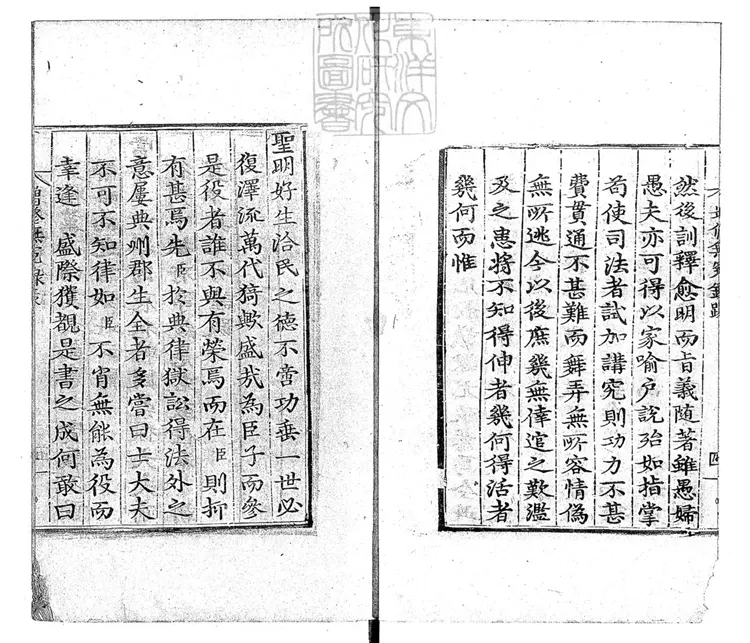 然後訓釋愈明而旨義隨著雖愚婦
愚夫亦可得以家喻户說殆如指掌
苟使司法者試加講究則功力不甚
費貫通不甚難而舞弄無所容情僞
無所逃今以後庶幾無倖逭之歎濫
及之惠將不知得伸者幾何得活者
幾何而惟
聖明好生洽民之德不啻功垂一世必
復澤流萬代猗歟盛哉為臣子而參
是役者誰不與有榮焉而在臣則抑
有甚焉先臣於典律獄訟得法外之
意屢典州郡生全者多嘗曰士大夫
不可不知律如臣不肖無能為役而
幸逢 盛際獲覩是書之成何敢曰
東洋文
化研究
所圖書